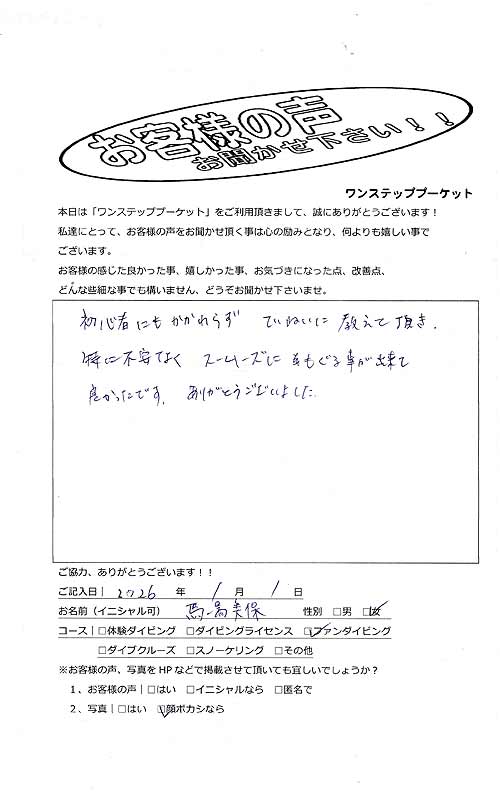 お客様の声
お聞かせ下さい！！
ワンステッププーケット
本日は「ワンステッププーケット」をご利用頂きまして、誠にありがとうございます！
私達にとって、お客様の声をお聞かせ頂く事は心の励みとなり、何よりも嬉しい事で
ございます。
お客様の感じた良かった事、嬉しかった事、お気づきになった点、改善点、
どんな些細な事でも構いません、どうぞお聞かせ下さいませ。
初心者にもかかわらず ていねいに 教えて頂き、
特に不安なく スームーズに もぐる事が出来て
良かったです。ありがとうございました。
ご協力、ありがとうございます！！
ご記入日| 2026 年 1 月 1 日
お名前（イニシャル可） 美保 性別 □男 □女
コース|□体験ダイビング □ダイビングライセンス □ファンダイビング
□ダイブクルーズ □スノーケリング □その他
※お客様の声、写真をHPなどで掲載させて頂いても宜しいでしょうか？
１、お客様の声|□はい □イニシャルなら □匿名で
２、写真|□はい □顔ボカシなら